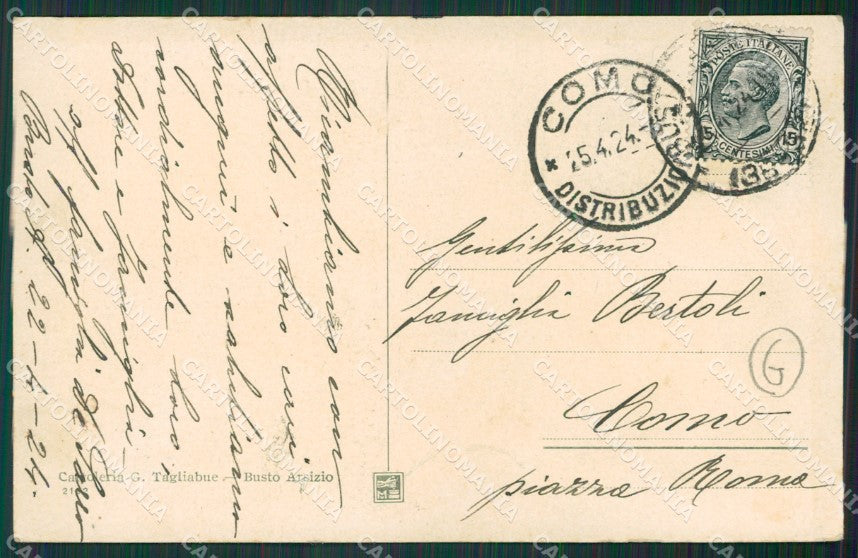 Ricambiamo con
affetto i loro cari
auguri e salutiamo
cordialmente loro i
Dottore e famiglia
aff famiglia
Busto A. 22-4-24.
Cartoleria G. Tagliabue - Busto Arsizio
COMO
25.4.24.
DISTRIBUZI
POSTE ITALIANE
15 CENTESIMI 15
Gentilissima
Famiglia Bertoli
Como
piazza Roma
G
CARTOLINOMANIA